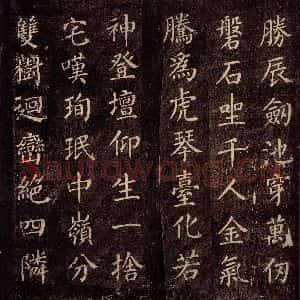 勝辰劔池穿萬仞
磐石坐千人金氣
騰爲虎琴臺化若
神登壇仰生一捨
宅嘆珣珉中嶺分
雙樹迴巒絕四隣